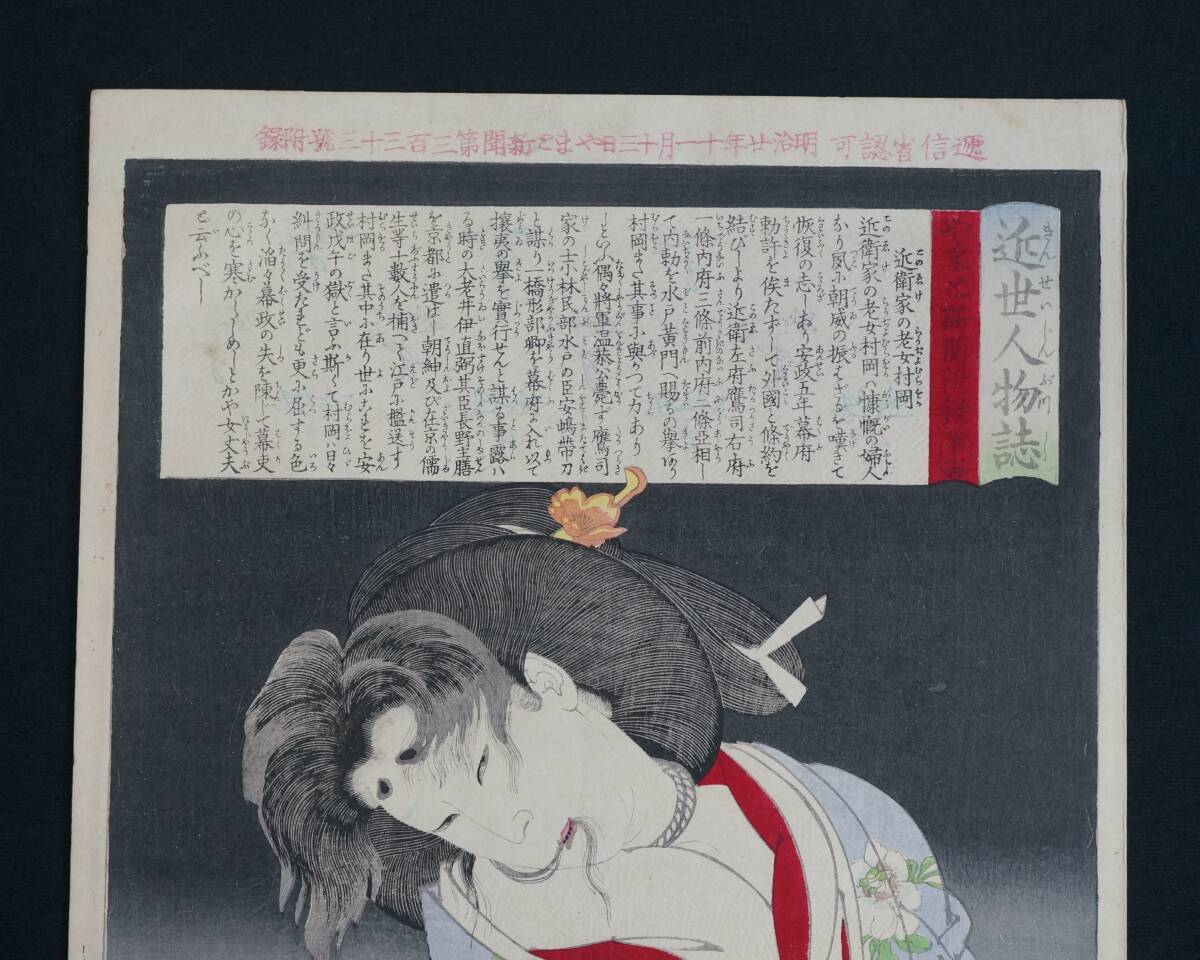 逓信省認可 明治廿年十一月十三日やまと新聞第三百三十三號附録
近世人物誌
きんせいじんぶつし
やまと新聞附録第十四
近衛家の老女村岡
近衛家の老女村岡ハ慷慨の婦人
なり夙小朝威の振はざるを嘆きて
恢復の志しあり安政五年幕府
勅許を俟たずして外國と條約を
結びしより近衛左府鷹司右府
一條内府三條前内府二條亞相し
て内勅を水戸黄門へ賜ふの擧あり
村岡また其事小與つて力あり
しといふ偶々將軍温恭公薨ず鷹司
家の士小林民部水戸の臣安嶋帯刀
と謀り一橋形部卿を幕府へ入れ以て
攘夷の擧を實行せんと謀る事露ハ
る時の大老井伊直弼其臣長野主膳
を京都小遣はし朝紳及び在京の儒
生等十數人を捕へて江戸小檻送す
村岡また其中小在り世小之を安
政戊午の獄と言ふ斯くて村岡ハ日々
糾問を受たれども更小屈する色
なく滔々幕政の失を陳じて幕吏
の心を寒からしめしとかや女丈夫
と云ふべし